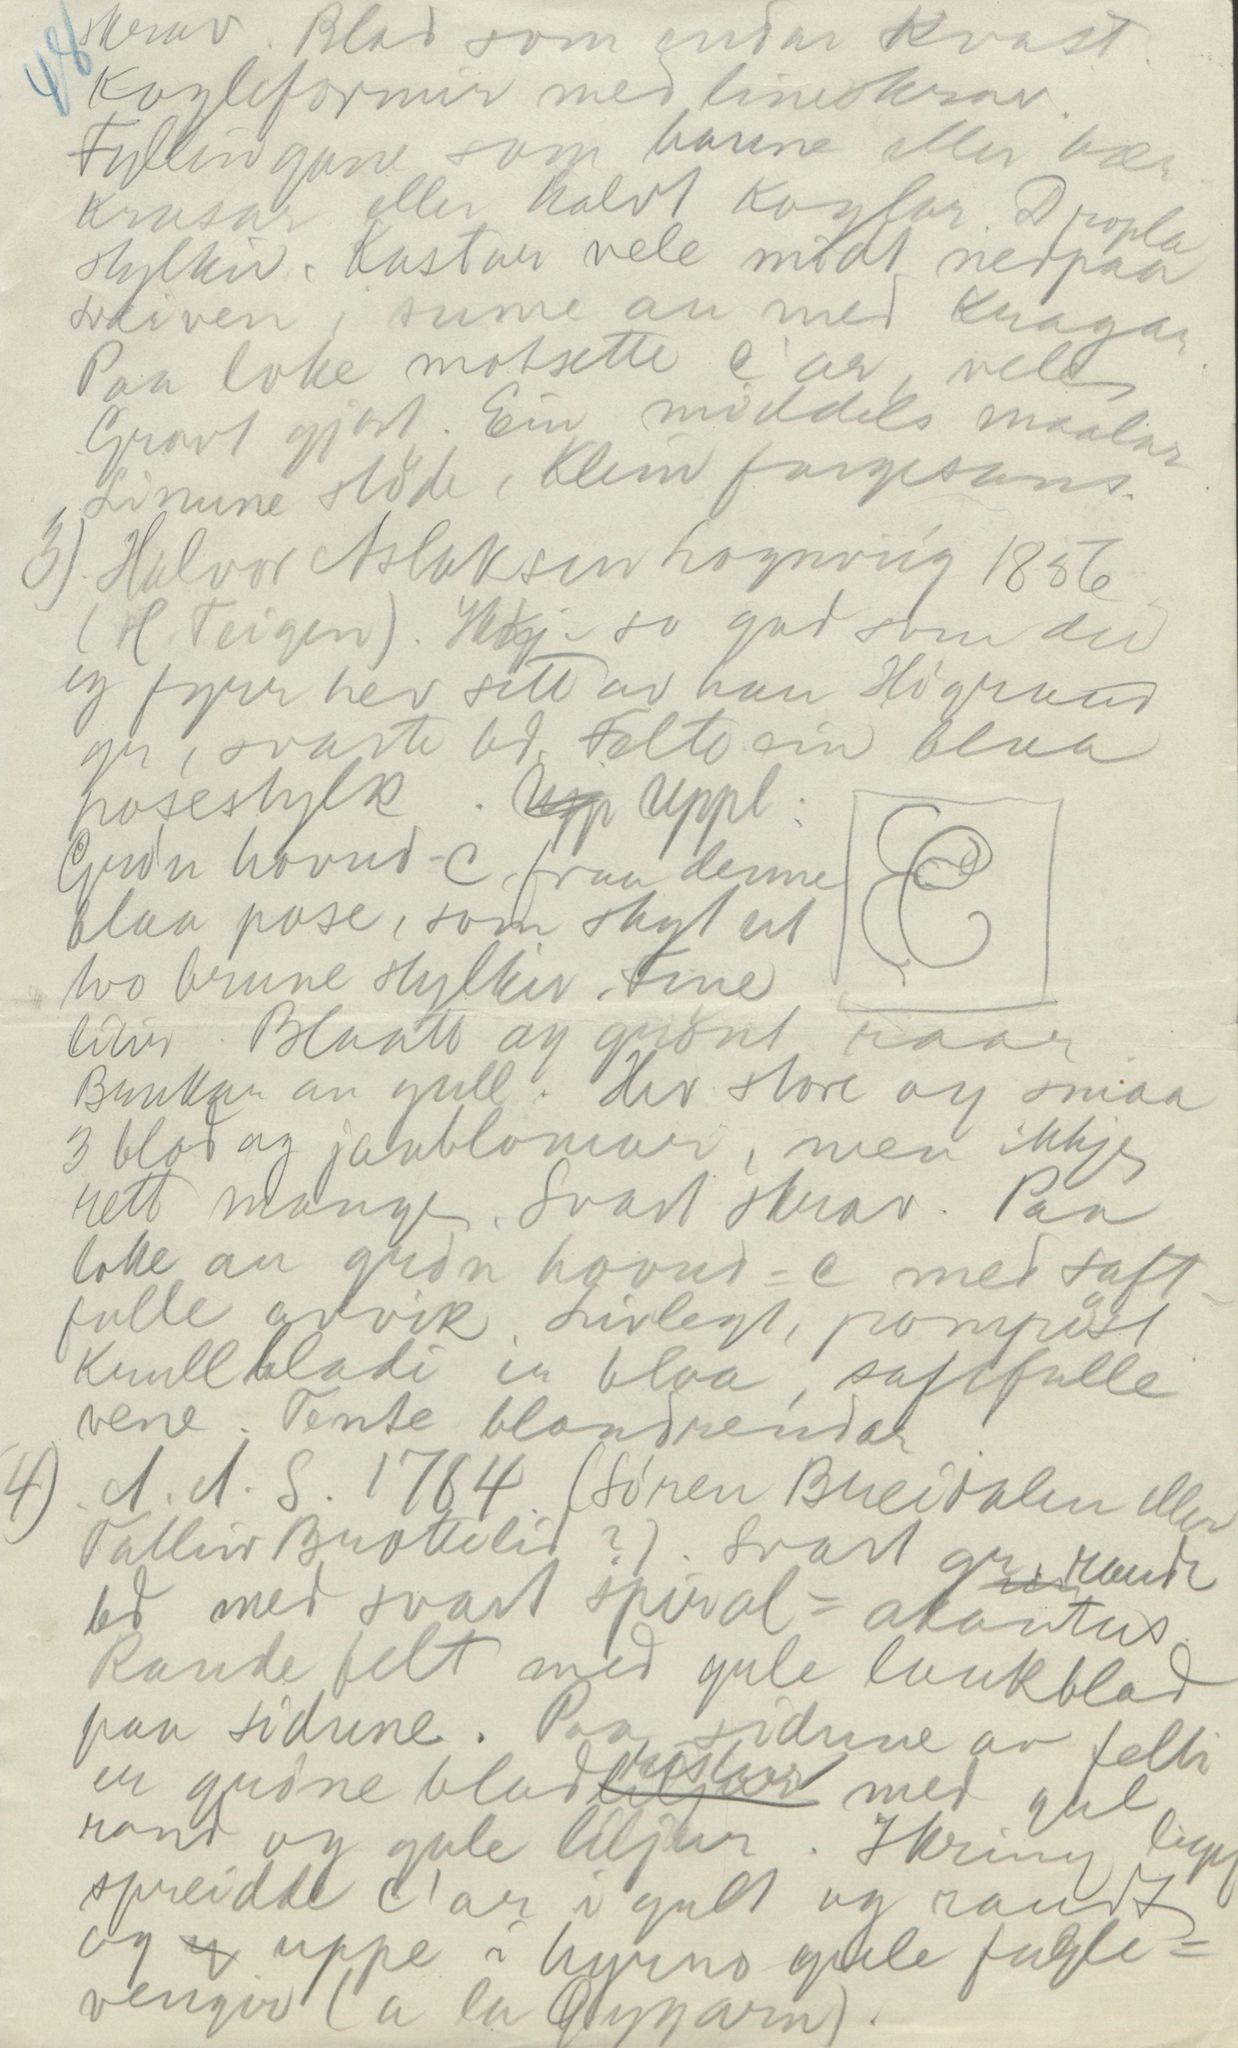 48
skrav. Blad som endar Kvast.
Kogleformir med lineskrav.
Fyllingane som baune eller bær
krusar eller halvt Koglar. Dropla
stylkir. Kastar vele midt nedpaa
sveiven, sume au med Kragar
Paa loke motsette C'ar, veles
Gravt gjort. Ein middels maalar
Linune stöde, Klein fargesans.
3) Halvor Aslaksen hognviig 1856
(H. Teigen). so god som dei
eg fyrr hev sett av han Högraud
gr, svarte bd. Felto ein blaa
posestylk. Uppl.
Grön hovud-C fraa denne
blaa pose, som skyt ut
two brune stylkir. Fine
liliur. Blaatt og grönt raar
Brukar au gull. Hev store og smaa
3 blad og janblomar, men ikkje
rett mange. Svart skrav. Paa
loke au grön hovud=C med saft-
fulle avvik. Livlegt, pompöst
Krullbladi er blaa, saftfulle
vene. Tente blandrendar
4) A. A. S. 1764 (Sören Bueidalen eller
Talleiv Brottelid?). Svart gr, raude
bd med svart spiral=akantus.
Raude felt med gule laukblad
paa sidune. Paa sidune av felti
er gröne blad med gul
rand og gule liljur. Ikring
spreidde C'ar i gult og raudt
og uppe i hyrno gule fugle=
vengir (a la Gygarn).